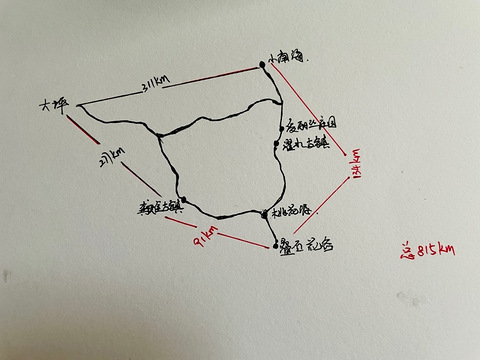 小南海.
311km
大坪
夏丽丝庄园
濯水古镇
271km
134km
龚滩古镇
桃花源.
91km
叠石花谷
总815km